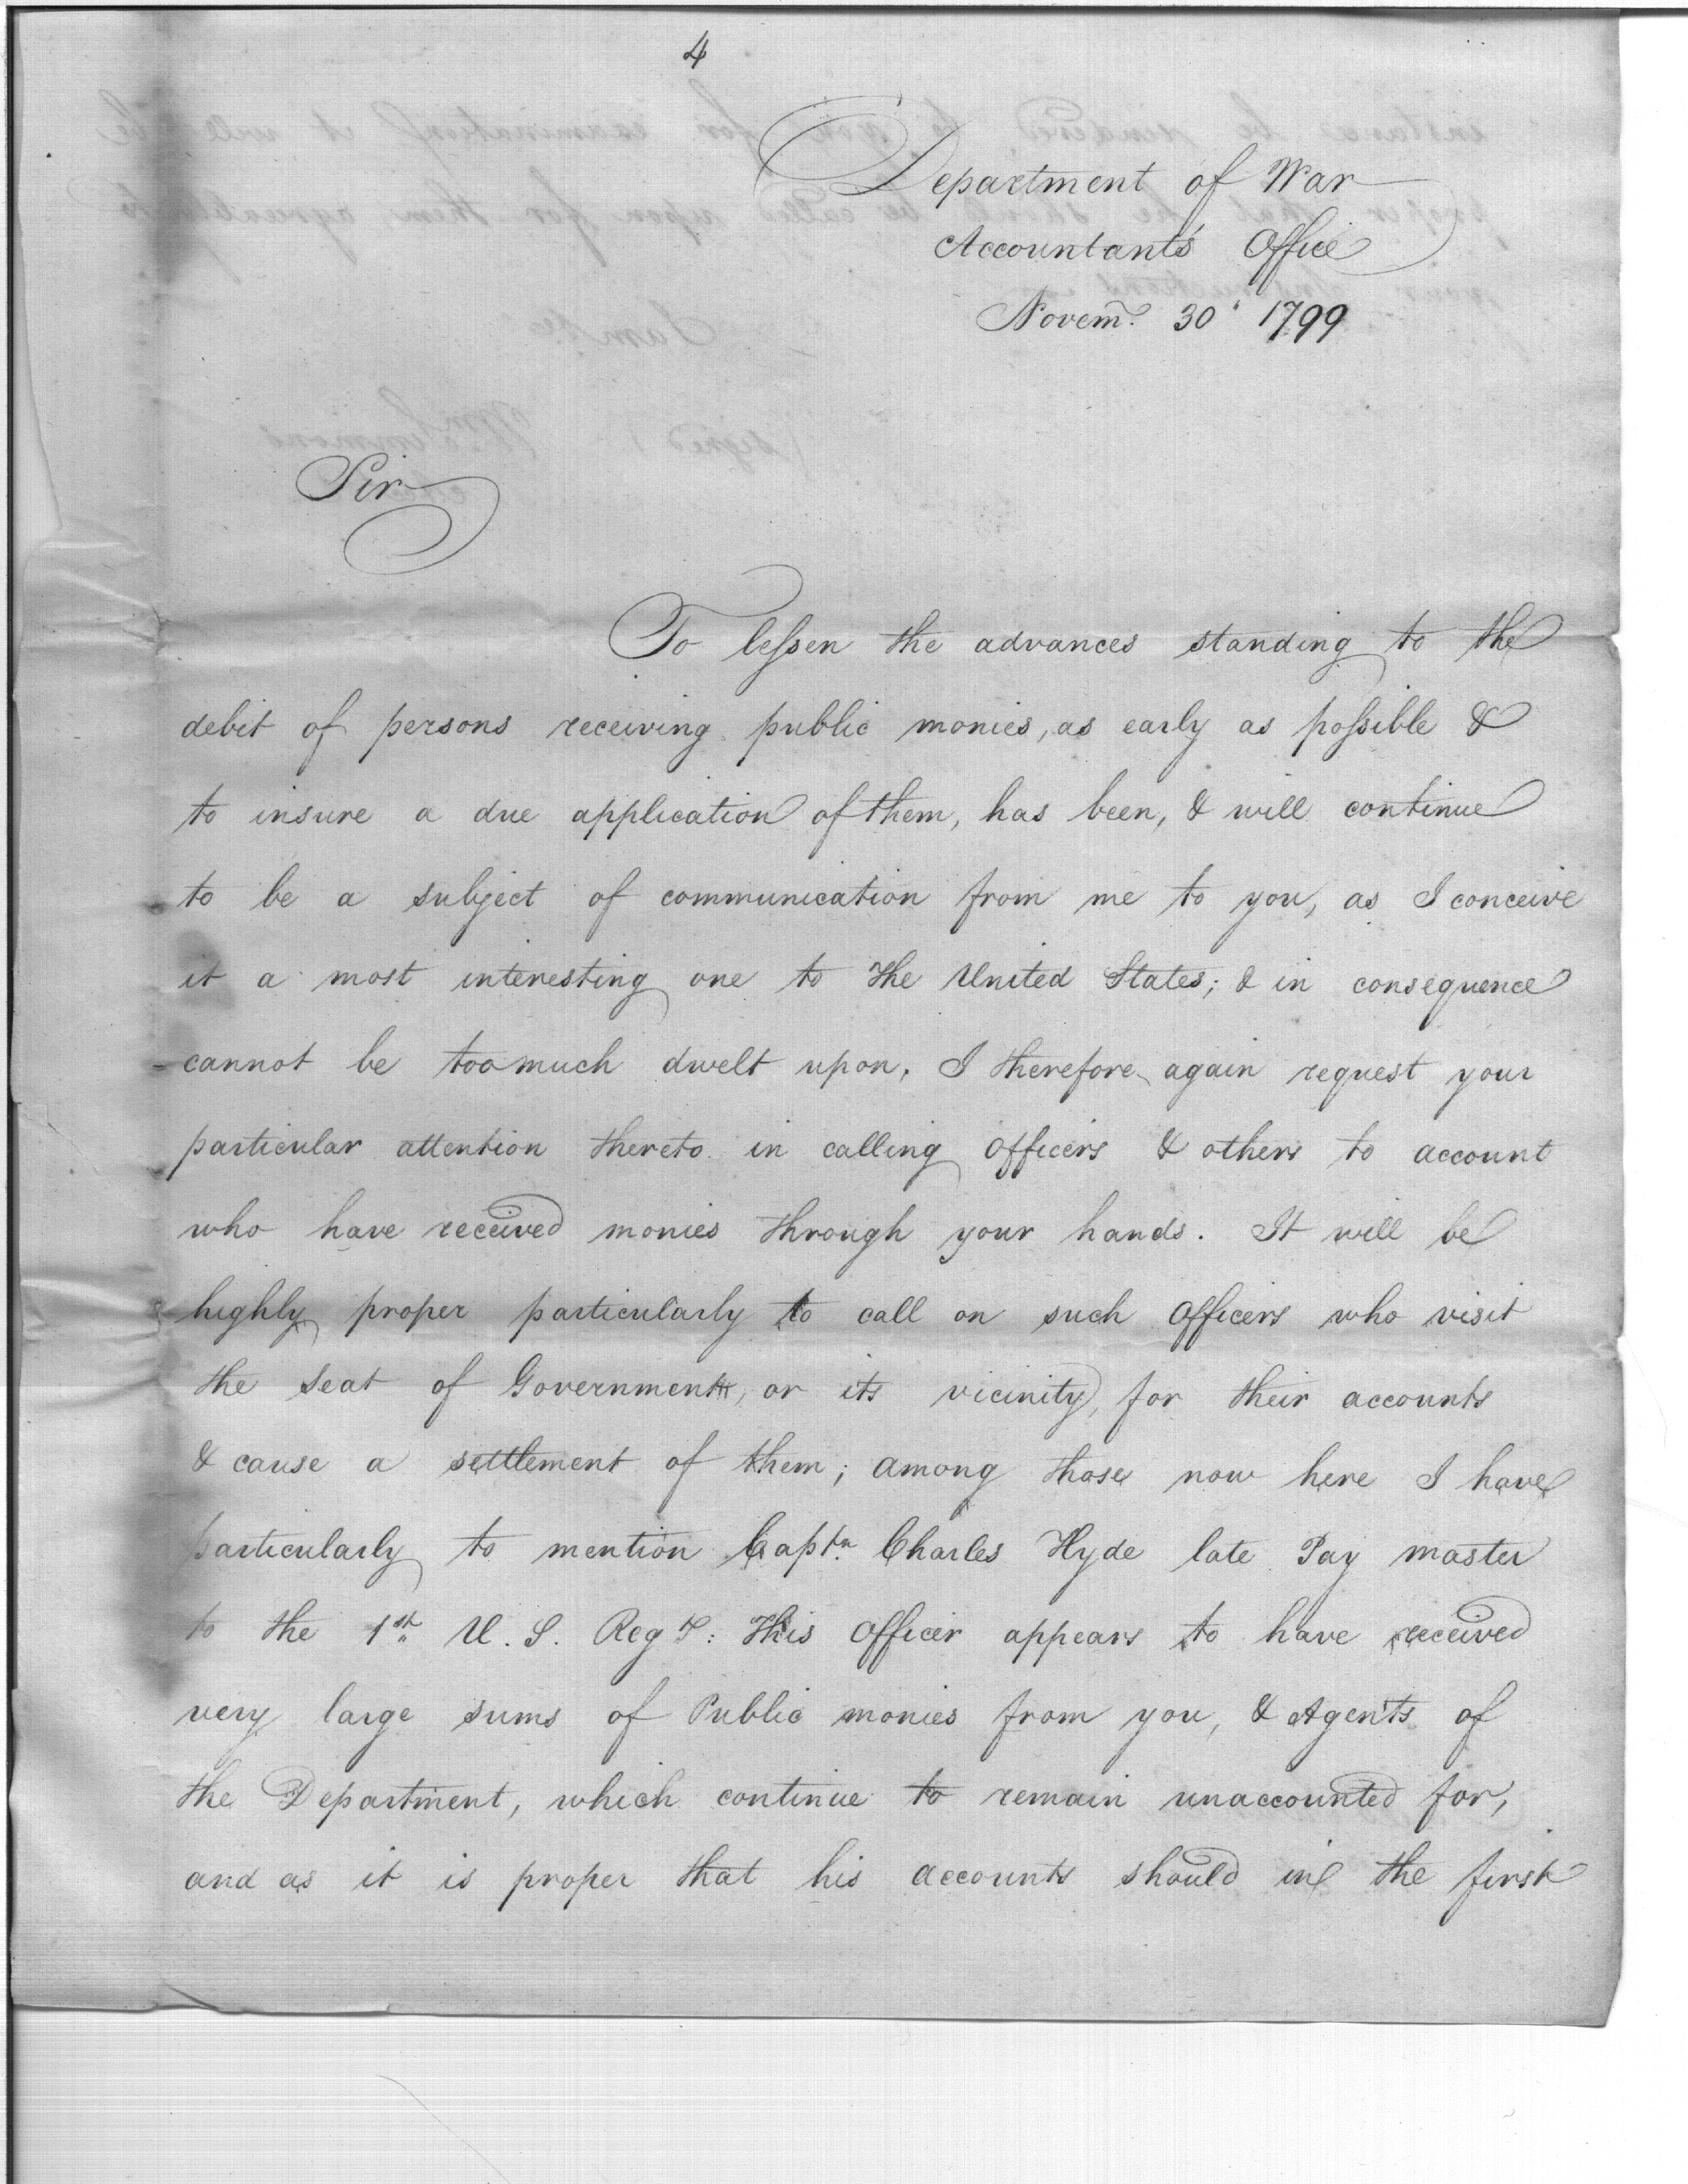 4
Department of War
Accountants Office
Novem. 30 1799
Sir
To lessen the advances standing to the
debit of persons receiving public monies, as early as possible &
to insure a due application of them, has been, & will continue
to be a subject of communication from me to you, as I conceive
it a most interesting one to the United States; & in consequence
cannot be too much dwelt upon. I therefore again request your
particular attention thereto in calling officers & others to account
who have received monies through your hands. It will be
highly proper particularly to call on such officers who visit
the Seat of Government, or its vicinity, for their accounts
& cause a settlement of them; among those now here I have
particularly to mention Captn. Charles Hyde late Pay master
to the 1st. U. S. Regt: This officer appears to have received
very large sums of Public monies from you, & Agents of
the Department, which continue to remain unaccounted for,
and as it is proper that his accounts should in the first